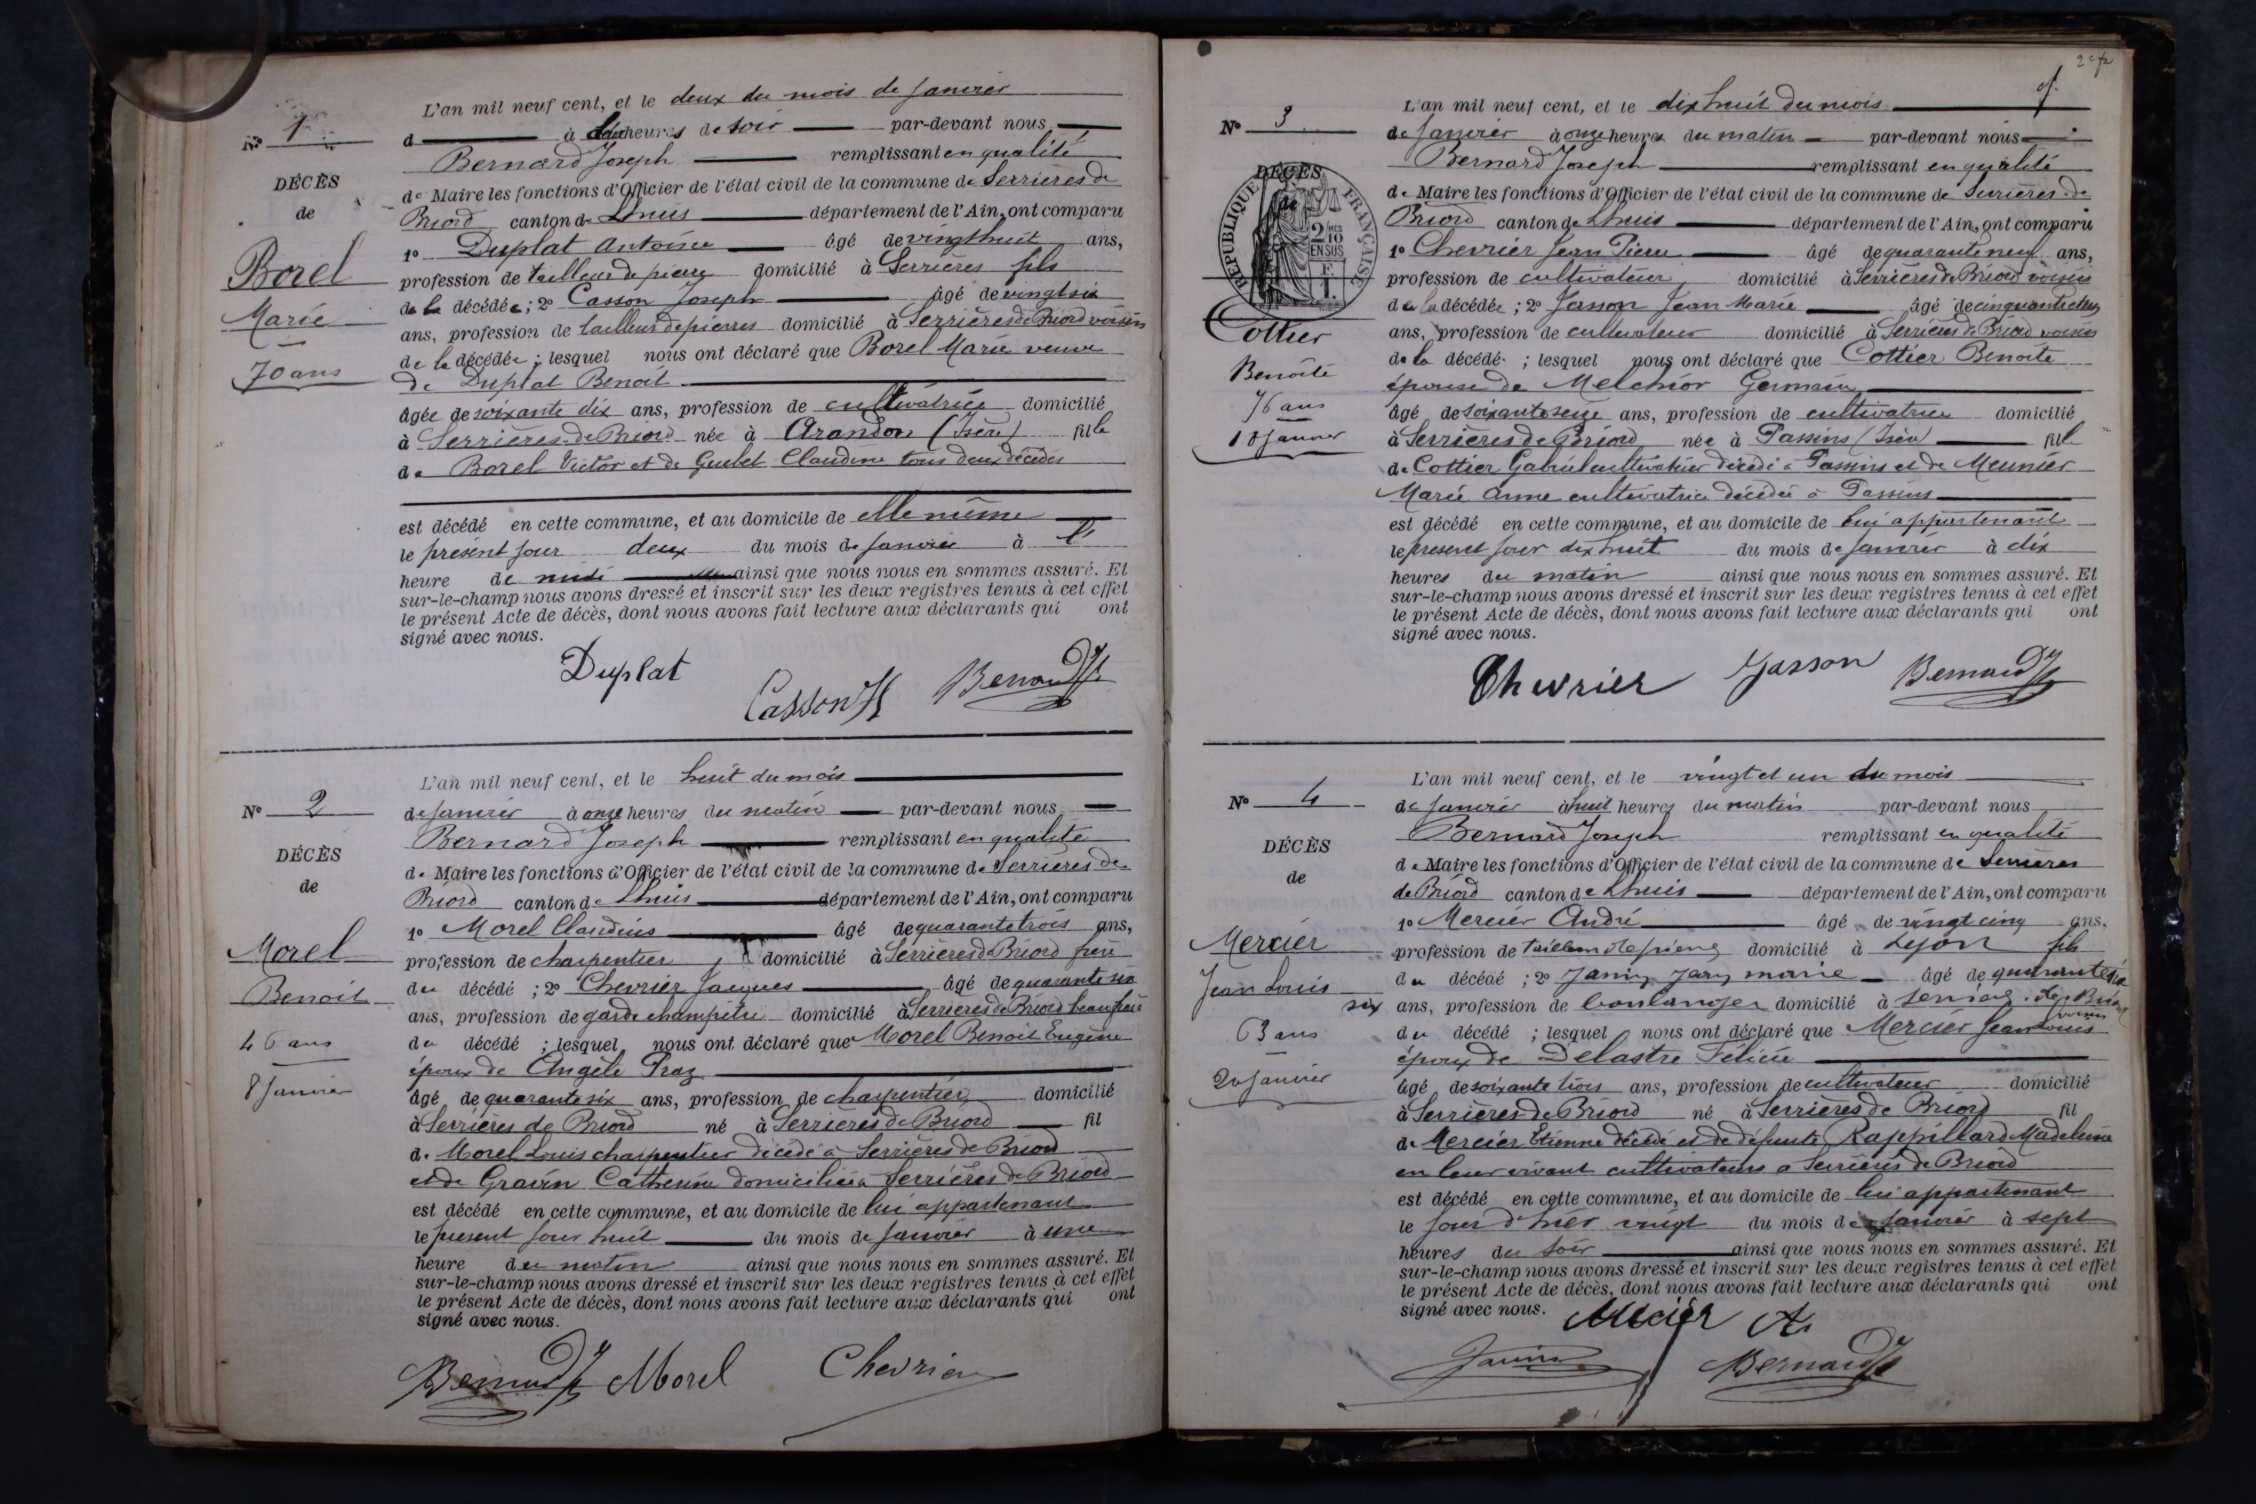 L'an mil neuf cent, et le deux du mois de Janvier
d à deux heures de soir par-devant nous
Nº 1
Bernard Joseph remplissant en qualité
DÉCÈS
de Maire les fonctions d'Officier de l'état civil de la commune de Serrières de
de
Briord canton de Lhuis département de l'Ain, ont comparu
1º Duplat Antoine âgé de vingt huit ans,
Borel
profession de tailleur de pierres domicilié à Serrières fils
de la décédée; 2º Casson Joseph âgé de vingt six
Marie
ans, profession de tailleur de pierres domicilié à Serrières de Briord voisin
de la décédée; lesquel nous ont déclaré que Borel Marie veuve
70 ans
de Duplat Benoit
âgée de soixante dix ans, profession de cultivatrice domicilié
à Serrières de Briord née à Arandon (Isère) fille
de Borel Victor et de Claudine tous deux décédés
est décédé en cette commune, et au domicile de elle même
le présent jour deux du mois de Janvier à
heure de midi ainsi que nous nous en sommes assuré. Et
sur-le-champ nous avons dressé et inscrit sur les deux registres tenus à cet effet
le présent Acte de décès, dont nous avons fait lecture aux déclarants qui ont
signé avec nous.
Duplat Casson J Bernard J
L'an mil neuf cent, et le huit du mois
Nº 2
de Janvier à onze heures du matin par-devant nous
Bernard Joseph remplissant en qualité
DÉCÈS
de Maire les fonctions d'Officier de l'état civil de la commune de Serrières de
de
Briord canton de Lhuis département de l'Ain, ont comparu
1º Morel Claudius âgé de quarante trois ans,
Morel
profession de charpentier domicilié à Serrières de Briord frère
du décédé; 2º Chevrier Jacques âgé de quarante six
Benoit
ans, profession de garde champêtre domicilié à Serrières de Briord beau frère
46 ans
du décédé; lesquel nous ont déclaré que Morel Benoit Eugène
époux de Angèle Praz
8 Janvier
âgé de quarante six ans, profession de charpentier domicilié
à Serrières de Briord né à Serrières de Briord fil
de Morel Louis charpentier décédé à Serrières de Briord
et de Gravin Catherine domiciliée à Serrières de Briord
est décédé en cette commune, et au domicile de lui appartenant
le présent jour huit du mois de Janvier à une
heure du matin ainsi que nous nous en sommes assuré. Et
sur-le-champ nous avons dressé et inscrit sur les deux registres tenus à cet effet
le présent Acte de décès, dont nous avons fait lecture aux déclarants qui ont
signé avec nous.
Bernard J Morel Chevrier
L'an mil neuf cent, et le dix huit du mois
Nº 3
de Janvier à onze heures du matin par-devant nous
Bernard Joseph remplissant en qualité
DÉCÈS
de
RÉPUBLIQUE FRANÇAISE
2/10 EN SUS
de Maire les fonctions d'Officier de l'état civil de la commune de Serrières de
Briord canton de Lhuis département de l'Ain, ont comparu
1º Chevrier Jean Pierre âgé de quarante neuf ans,
profession de cultivateur domicilié à Serrières de Briord voisin
de la décédée; 2º Jasson Jean Marie âgé de cinquante
Cottier
ans, profession de cultivateur domicilié à Serrières de Briord voisin
de la décédé; lesquel nous ont déclaré que Cottier Benoite
Benoite
épouse de Melchior Germain
76 ans
âgé de soixante seize ans, profession de cultivatrice domicilié
18 Janvier
à Serrières de Briord née à Passins (Isère) fille
de Cottier Gabriel cultivateur décédé à Passins et de Meunier
Marie Anne cultivatrice décédée à Passins
est décédé en cette commune, et au domicile de lui appartenant
le présent jour dix huit du mois de Janvier à dix
heures du matin ainsi que nous nous en sommes assuré. Et
sur-le-champ nous avons dressé et inscrit sur les deux registres tenus à cet effet
le présent Acte de décès, dont nous avons fait lecture aux déclarants qui ont
signé avec nous.
Chevrier Jasson Bernard J
L'an mil neuf cent, et le vingt et un du mois
Nº 4
de Janvier à huit heures du matin par-devant nous
Bernard Joseph remplissant en qualité
DÉCÈS
de Maire les fonctions d'Officier de l'état civil de la commune de Serrières
de
de Briord canton de Lhuis département de l'Ain, ont comparu
1º Mercier André âgé de vingt cinq ans,
Mercier
profession de tailleur de pierres domicilié à Lyon fils
du décédé; 2º Janin Jean marie âgé de quarante six
Jean Louis
six ans, profession de boulanger domicilié à Serrières de Briord
voisin
63 ans
du décédé; lesquel nous ont déclaré que Mercier Jean Louis
époux de Delastre Félicie
20 Janvier
âgé de soixante trois ans, profession de cultivateur domicilié
à Serrières de Briord né à Serrières de Briord fil
de Mercier Etienne décédé et de défunte Rappillard Madeleine
en leur vivant cultivateurs à Serrières de Briord
est décédé en cette commune, et au domicile de lui appartenant
le jour d'hier vingt du mois de Janvier à sept
heures du soir ainsi que nous nous en sommes assuré. Et
sur-le-champ nous avons dressé et inscrit sur les deux registres tenus à cet effet
le présent Acte de décès, dont nous avons fait lecture aux déclarants qui ont
signé avec nous.
Mercier A
Janin Bernard J